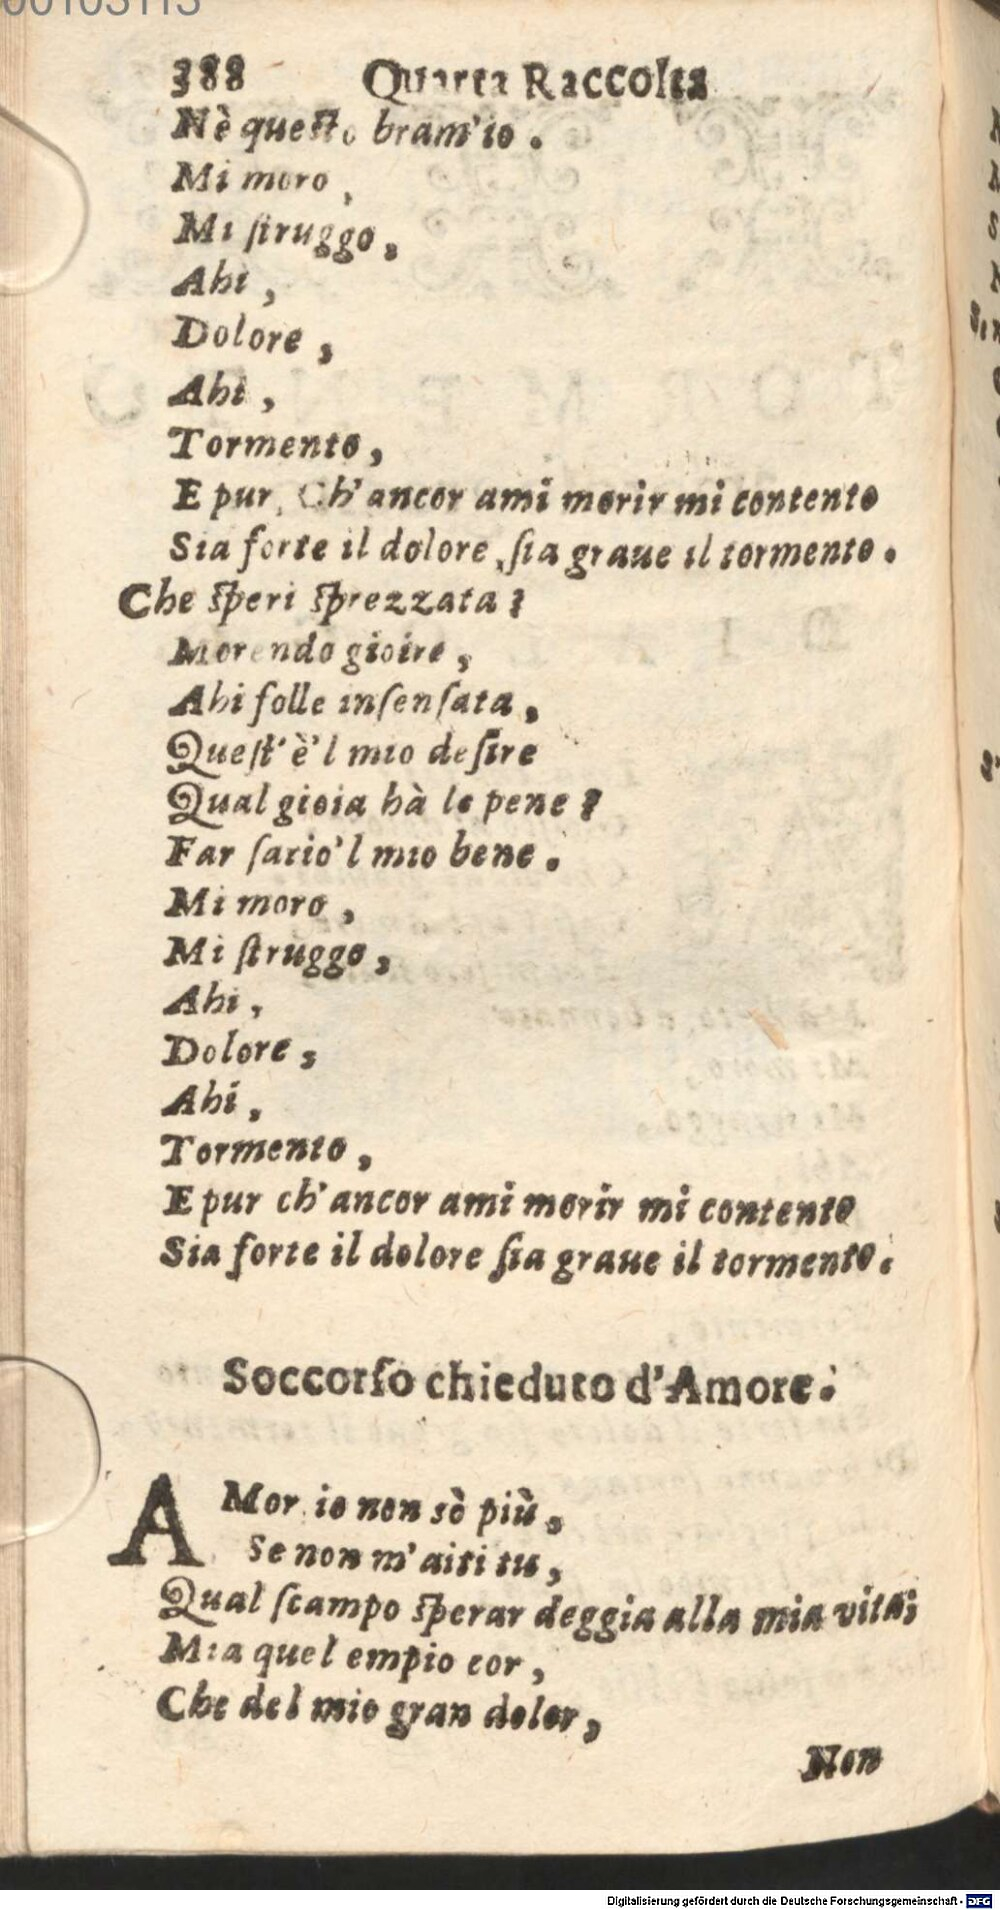 00103113
388 Quarta Raccolta
Nè questo bram'io.
Mi moro,
Mi ſtruggo,
Ahi,
Dolore,
Ahi,
Tormento,
E pur, Ch'ancor ami morir mi contento
Sia forte il dolore, ſia graue il tormento.
Che ſperi ſprezzata?
Morendo gioire,
Ahi folle inſenſata,
Queſt'è'l mio deſire
Qual gioia hà le pene?
Far ſatio'l mio bene.
Mi moro,
Mi ſtruggo,
Ahi,
Dolore,
Ahi,
Tormento,
E pur ch'ancor ami morir mi contento
Sia forte il dolore ſia graue il tormento.
Soccorſo chieduto d'Amore.
AMor io non sò più,
Se non m'aiti tu,
Qual ſcampo ſperar deggia alla mia vita;
Mia quel empio cor,
Che del mio gran dolor,
Non
Digitalisierung gefördert durch die Deutsche Forschungsgemeinschaft - DFG